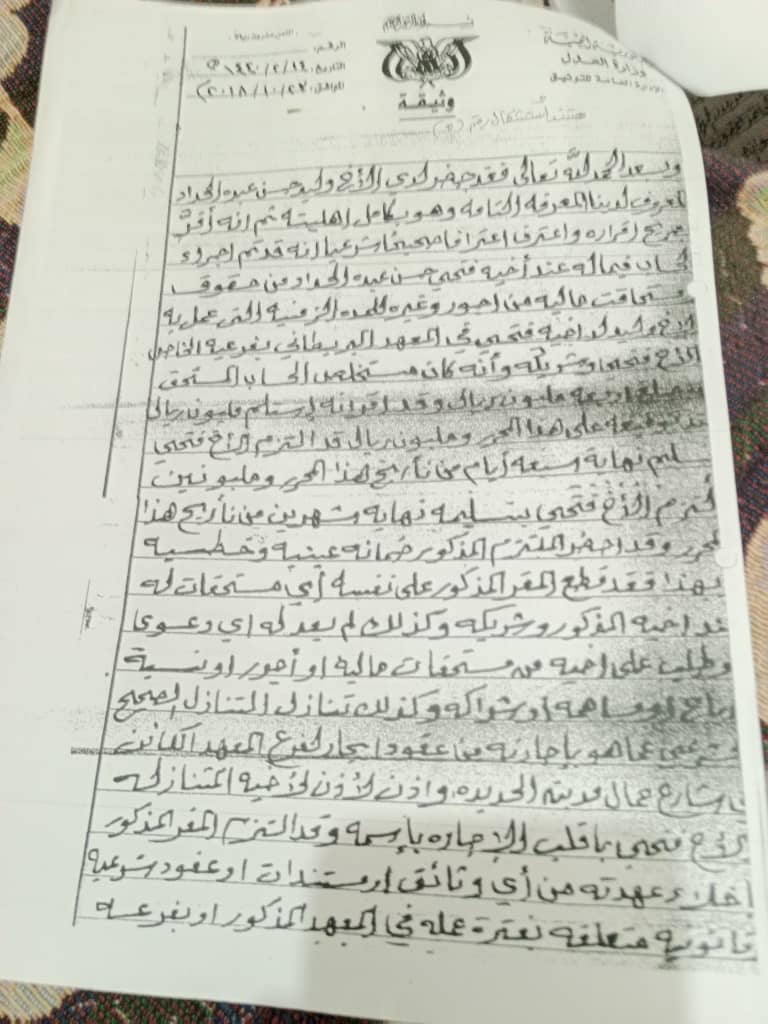 وزارة العدل
الرقم:
التاريخ: ١٤٤٠/٢/١٤ هـ
الموافق: ٢٠١٨/١٠/٢٣ م
وثيقة
وبعد الحمد لله تعالى فقد حضر لدي الأخ وليد حسن عبده الحداد
المعروف لدينا المعرفة التامة وهو بكامل اهليته ثم انه أقر
صريح إقراره واعترف اعترافا صحيحا شرعيا انه قد تم اجراء
الحساب فيما له عند أخيه فتحي حسن عبده الحداد من حقوق
ومستحقات ماليه من اجور وغيره للمده الزمنية التي عمل به
الأخ وليد لدى اخيه فتحي في المعهد البريطاني بفرعيه الخاص
الأخ فتحي وشريكه وأنه كان مستخلص الحساب المستحق
مبلغ اربعه مليون ريال وقد اقر انه إستلم مليون ريال
عند توقيعه على هذا المحرر ومليون ريال قد التزم الأخ فتحي
تسليم نهاية سبعه أيام من تأريخ هذا المحرر ومليونين
التزم الأخ فتحي بتسليمه نهاية شهرين من تأريخ هذا
المحرر وقد احضر الملتزم المذكور ضمانه عينيه وخطسيه
بهذا فقد قطع المقر المذكور على نفسه أي مستحقات له
عند اخيه المذكور وشريكه وكذلك لم يعد له اي دعوى
وطلب على اخيه من مستحقات ماليه او أجور او نسبة
ارباح او مساهمه او شراكه وكذلك تنازل التنازل الصحيح
الشرعي عما هو بإجارته من عقود ايجار لفرع المعهد الكائن
في شارع جمال مدينة الحديده واذن لأذن لأخيه المتنازل له
الأخ فتحي باقلب الإجاره بإسمه وقد التزم المقر المذكور
إخلاء عهدته من أي وثائق او مستندات او عقود شرعيه
قانونيه متعلقه بفترة عمله في المعهد المذكور او بفرعه